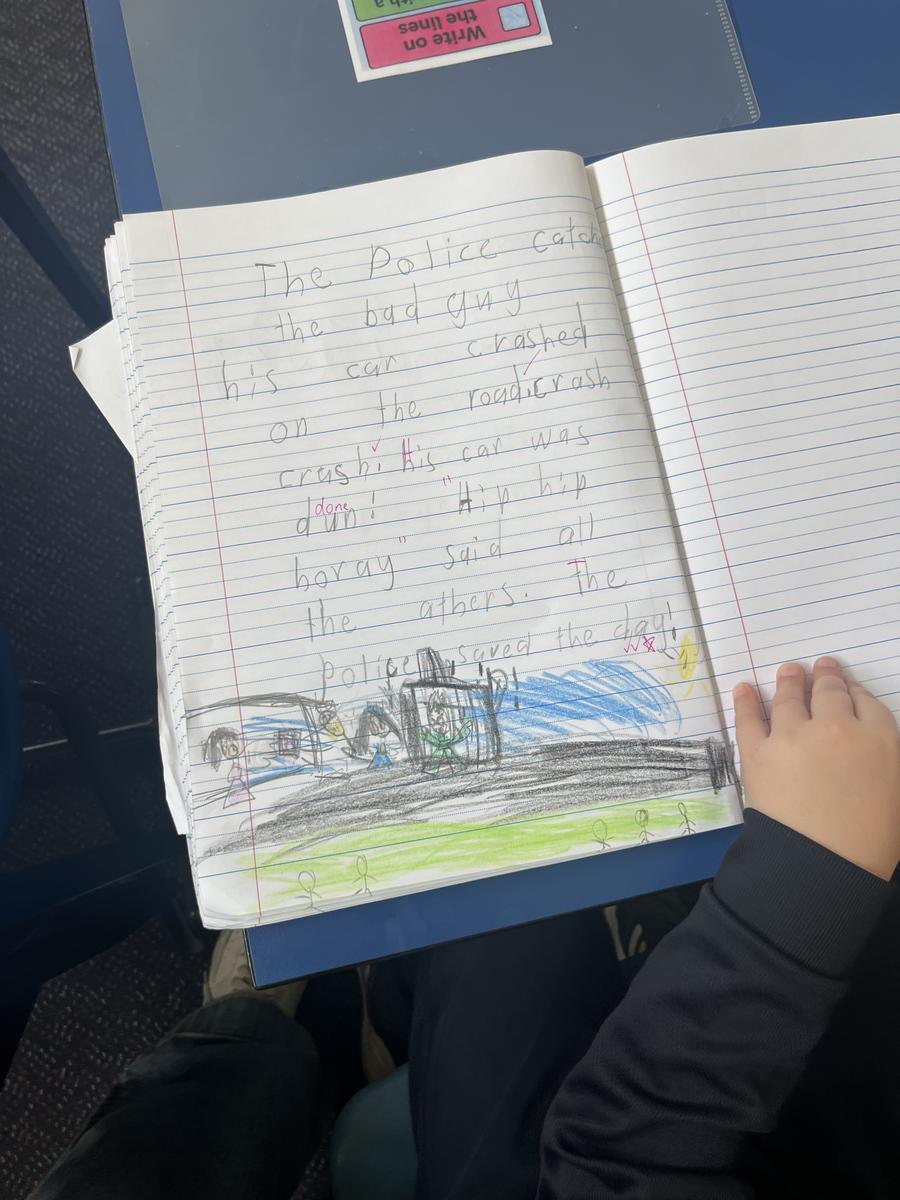 Write on
the lines
with a
The Police catch
the bad guy
his car crashed
on the road. Crash
crash! His car was
done
dun! "Hip hip
horay" said all
the athers. The
police saved the day!